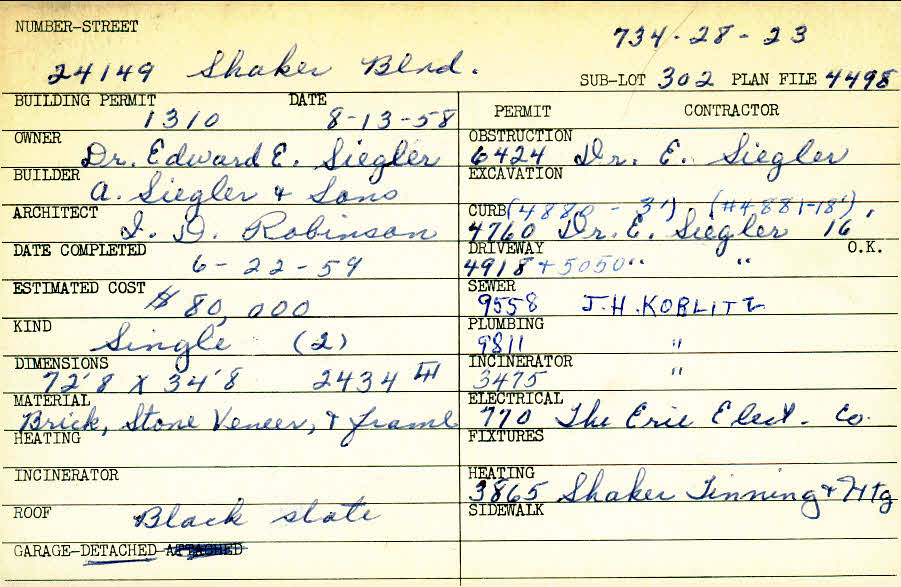 NUMBER-STREET
734-28-23
24149 Shaker Blvd.
SUB-LOT 302 PLAN FILE 4498
BUILDING PERMIT DATE
1310 8-13-58
OWNER
Dr. Edward E. Siegler
BUILDER
A. Siegler & Sons
ARCHITECT
I. D. Robinson
DATE COMPLETED
6-22-59
ESTIMATED COST
$ 80,000
KIND
Single (2)
DIMENSIONS
72'8 X 34'8 2434
MATERIAL
Brick, Stone Veneer, & frame
HEATING
INCINERATOR
ROOF
Black slate
GARAGE-DETACHED ATTACHED
PERMIT CONTRACTOR
OBSTRUCTION
6424 Dr. E. Siegler
EXCAVATION
CURB (4880 - 3') (#4881-18')
4760 Dr. E. Siegler 16
DRIVEWAY O.K.
4918 + 5050 " "
SEWER
9558 J.H. KOBLITZ
PLUMBING
9811 "
INCINERATOR
3475 "
ELECTRICAL
770 The Erie Elect. Co.
FIXTURES
HEATING
3865 Shaker Tinning & Htg
SIDEWALK